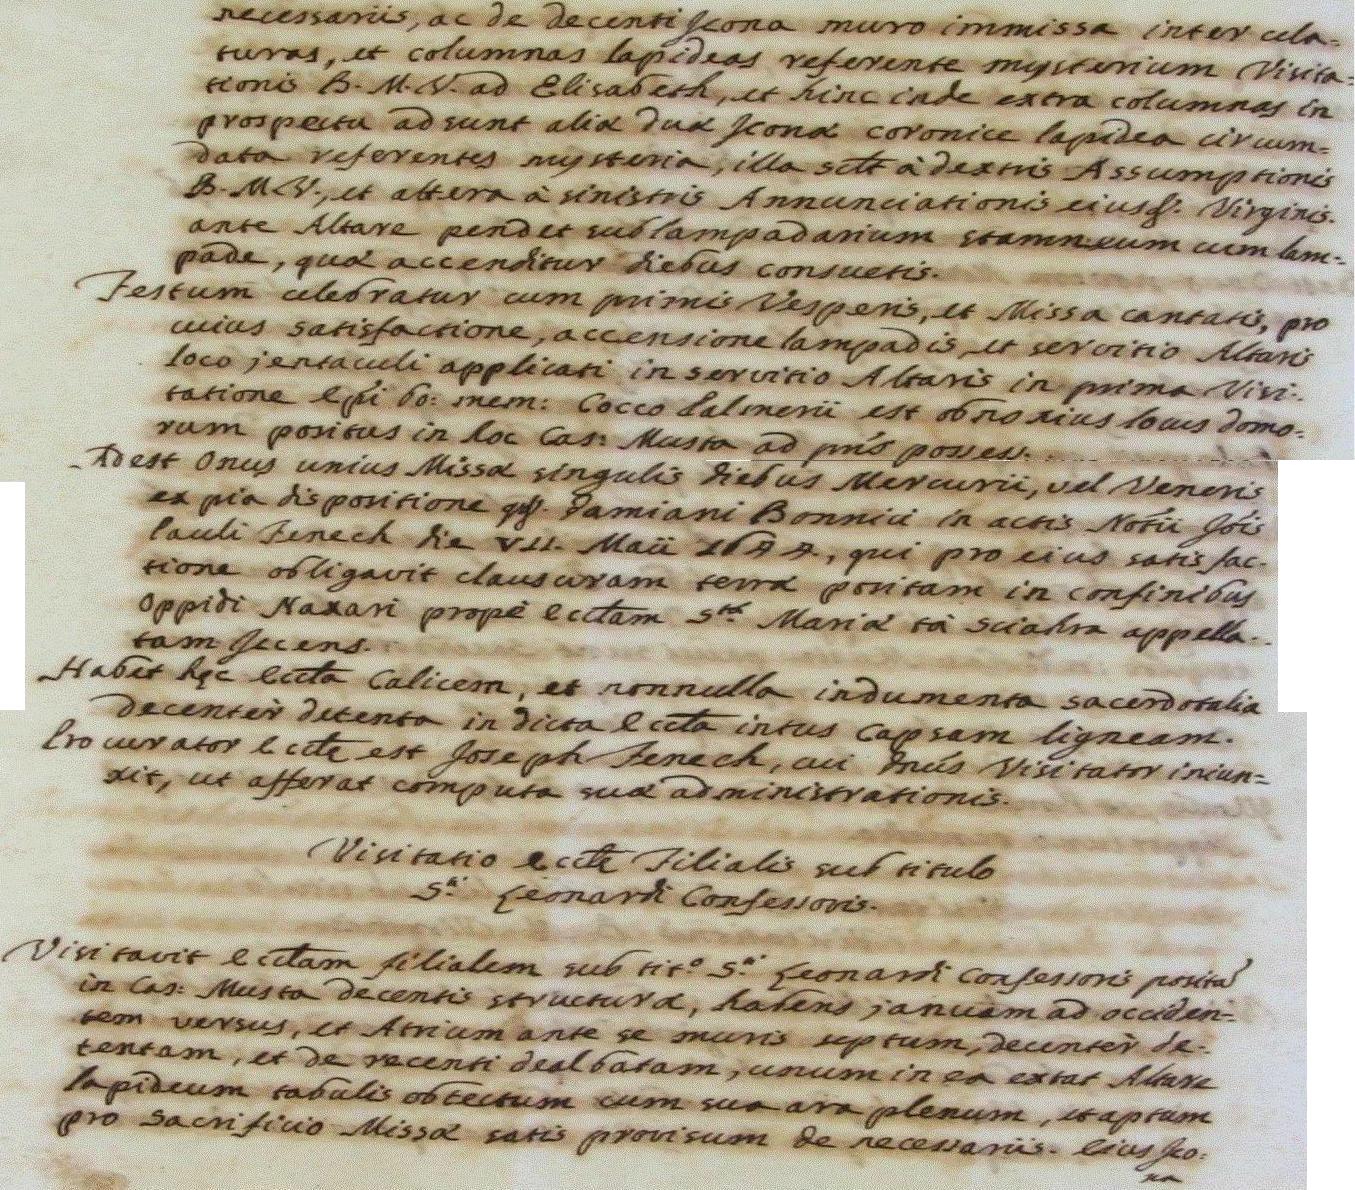 necessariis, ac de decenti Icona muro immissa inter cela=
turas, et columnas lapideas referente mysterium Visita-
tionis B. M. V. ad Elisabeth, et hinc inde extra columnas in
prospectu adsunt aliæ duæ Iconæ coronice lapidea circum=
data referentes mysteria, illa sclt à dextris Assumptionis
B. M. V., et altera à sinistris Annunciationis eiusd. Virginis.
ante Altare pendet sublampadarium stamneum cum lam=
pade, quæ accenditur diebus consuetis.
Festum celebratur cum primis Vesperis, et Missa cantatis, pro
cuius satisfactione, accensione lampadis, et servitio Altaris
loco jentaculi applicati in servitio Altaris in prima Visi-
tatione Epi bo: mem: Cocco Palmerii est obnoxius locus domo-
rum positus in loc Cas: Musta ad pns posses.
Adest Onus unius Missæ singulis diebus Mercurii, vel Veneris
ex pia dispositione qd. Damiani Bonnici in actis Notii Jois
Pauli Fenech die VII. Maii 1644, qui pro eius satisfac-
tione obligavit clausuram terræ positam in confinibus
Oppidi Naxari propè Ecclam Stæ Mariæ ta Sciahra appella-
tam Jecens.
Habet hæc Eccla Calicem, et nonnulla indumenta sacerdotalia
decentèr detenta in dicta Eccla intus Capsam ligneam.
Procurator Ecclæ est Joseph Fenech, cui Dnus Visitator iniun=
xit, ut afferat computa suæ administrationis.
Visitatio Ecclæ Filialis sub titulo
Sti Leonardi Confessoris.
Visitavit Ecclam filialem sub tito Sti Leonardi Confessoris posità
in Cas: Musta decentis structuræ, habens januam ad occiden=
tem versus, et Atrium ante se muris septum, decentèr de-
tentam, et de recenti dealbatam, unum in ea extat Altare
lapideum tabulis obtectum cum sua ara plenum, et aptum
pro sacrificio Missæ satis provisum de necessariis. Eius Ico-
na